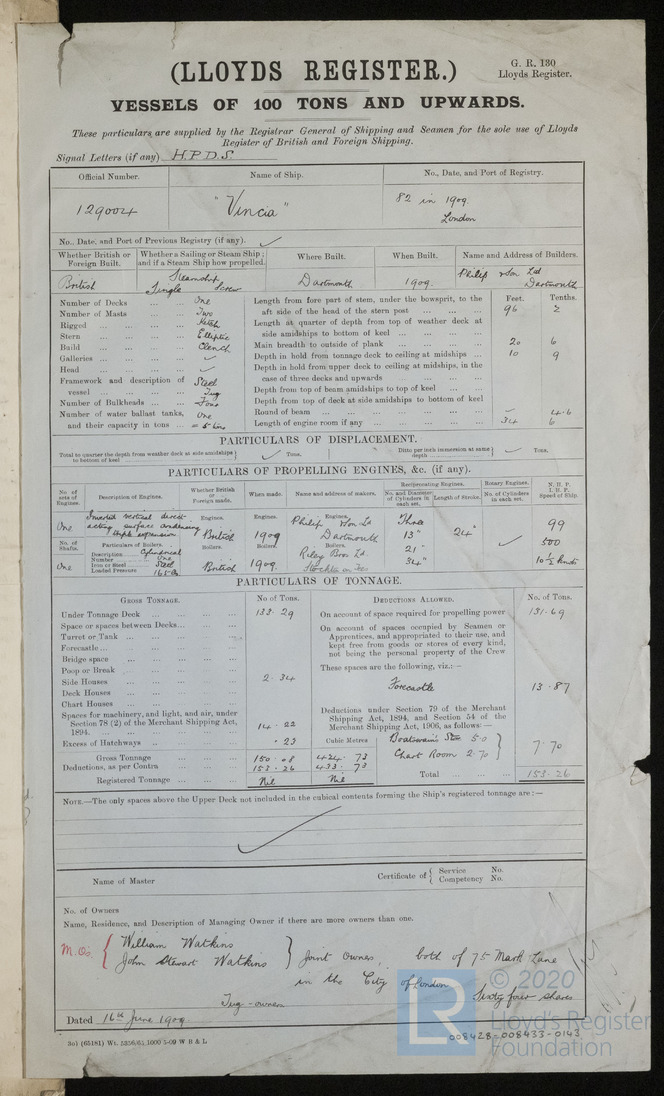 (LLOYDS REGISTER.)
G. R. 130
Lloyds Register.
VESSELS OF 100 TONS AND UPWARDS.
These particulars are supplied by the Registrar General of Shipping and Seamen for the sole use of Lloyds
Register of British and Foreign Shipping.
Signal Letters (if any) H.P.D.S.
Official Number. Name of Ship. No., Date, and Port of Registry.
129004 "Vincia" 82 in 1909
London
No., Date, and Port of Previous Registry (if any).
Whether British or Foreign Built. Whether a Sailing or Steam Ship; and if a Steam Ship how propelled. Where Built. When Built. Name and Address of Builders.
British Steamship Single Screw Dartmouth 1909. Philip & Son Ltd Dartmouth
Number of Decks ... One
Number of Masts ... Two
Rigged ... Ketch
Stern ... Elliptic
Build ... Clench
Galleries ...
Head ...
Framework and description of vessel ... Steel Tug
Number of Bulkheads ... Four
Number of water ballast tanks, and their capacity in tons ... One = 5 tons
Feet. Tenths.
Length from fore part of stem, under the bowsprit, to the aft side of the head of the stern post ... 96 2
Length at quarter of depth from top of weather deck at side amidships to bottom of keel ...
Main breadth to outside of plank ... 20 6
Depth in hold from tonnage deck to ceiling at midships ... 10 9
Depth in hold from upper deck to ceiling at midships, in the case of three decks and upwards ...
Depth from top of beam amidships to top of keel ...
Depth from top of deck at side amidships to bottom of keel
Round of beam ... 4.6
Length of engine room if any ... 34 6
PARTICULARS OF DISPLACEMENT.
Total to quarter the depth from weather deck at side amidships to bottom of keel Tons. Ditto per inch immersion at same depth Tons.
PARTICULARS OF PROPELLING ENGINES, &c. (if any).
No. of sets of Engines. Description of Engines. Whether British or Foreign made. When made. Name and address of makers. Reciprocating Engines. No. and Diameter of Cylinders in each set. Length of Stroke. Rotary Engines. No. of Cylinders in each set. N. H. P. I. H. P. Speed of Ship.
One Inverted vertical direct acting surface condensing triple expansion Engines. British Engines. 1909 Engines. Philip & Son Ld Dartmouth Three 13" 21" 34" 24" 99 500 10½ Knots
No. of Shafts. Particulars of Boilers. Boilers. Boilers. Boilers.
One Description Cylindrical
Number One
Iron or Steel Steel
Loaded Pressure 165 lbs British 1909. Riley Bros Ld. Stockton on Tees
PARTICULARS OF TONNAGE.
GROSS TONNAGE. No. of Tons. DEDUCTIONS ALLOWED. No. of Tons.
Under Tonnage Deck ... 133.29
Space or spaces between Decks...
Turret or Tank ...
Forecastle...
Bridge space ...
Poop or Break ...
Side Houses ... 2.34
Deck Houses ...
Chart Houses ...
Spaces for machinery, and light, and air, under Section 78 (2) of the Merchant Shipping Act, 1894. ... 14.22
Excess of Hatchways ... .23
Cubic Metres
Gross Tonnage ... 150.08 424.73
Deductions, as per Contra ... 153.26 433.73
Registered Tonnage ... Nil Nil
On account of space required for propelling power 131.69
On account of spaces occupied by Seamen or Apprentices, and appropriated to their use, and kept free from goods or stores of every kind, not being the personal property of the Crew
These spaces are the following, viz.:—
Forecastle 13.87
Deductions under Section 79 of the Merchant Shipping Act, 1894, and Section 54 of the Merchant Shipping Act, 1906, as follows:—
Boatswain's Store 5.0
Chart Room 2.70 7.70
Total ... 153.26
NOTE.—The only spaces above the Upper Deck not included in the cubical contents forming the Ship's registered tonnage are:—
Name of Master Certificate of Service No.
Competency No.
No. of Owners
Name, Residence, and Description of Managing Owner if there are more owners than one.
M.Os. William Watkins
John Stewart Watkins } Joint Owners, both of 75 Mark Lane
in the City of London
Tug-owners Sixty four shares
Dated 16th June 1909
3o) (65181) Wt. 5356/65 1000 5-09 W B & L
LR
© 2020
Lloyd's Register
Foundation
008428-008433-0143